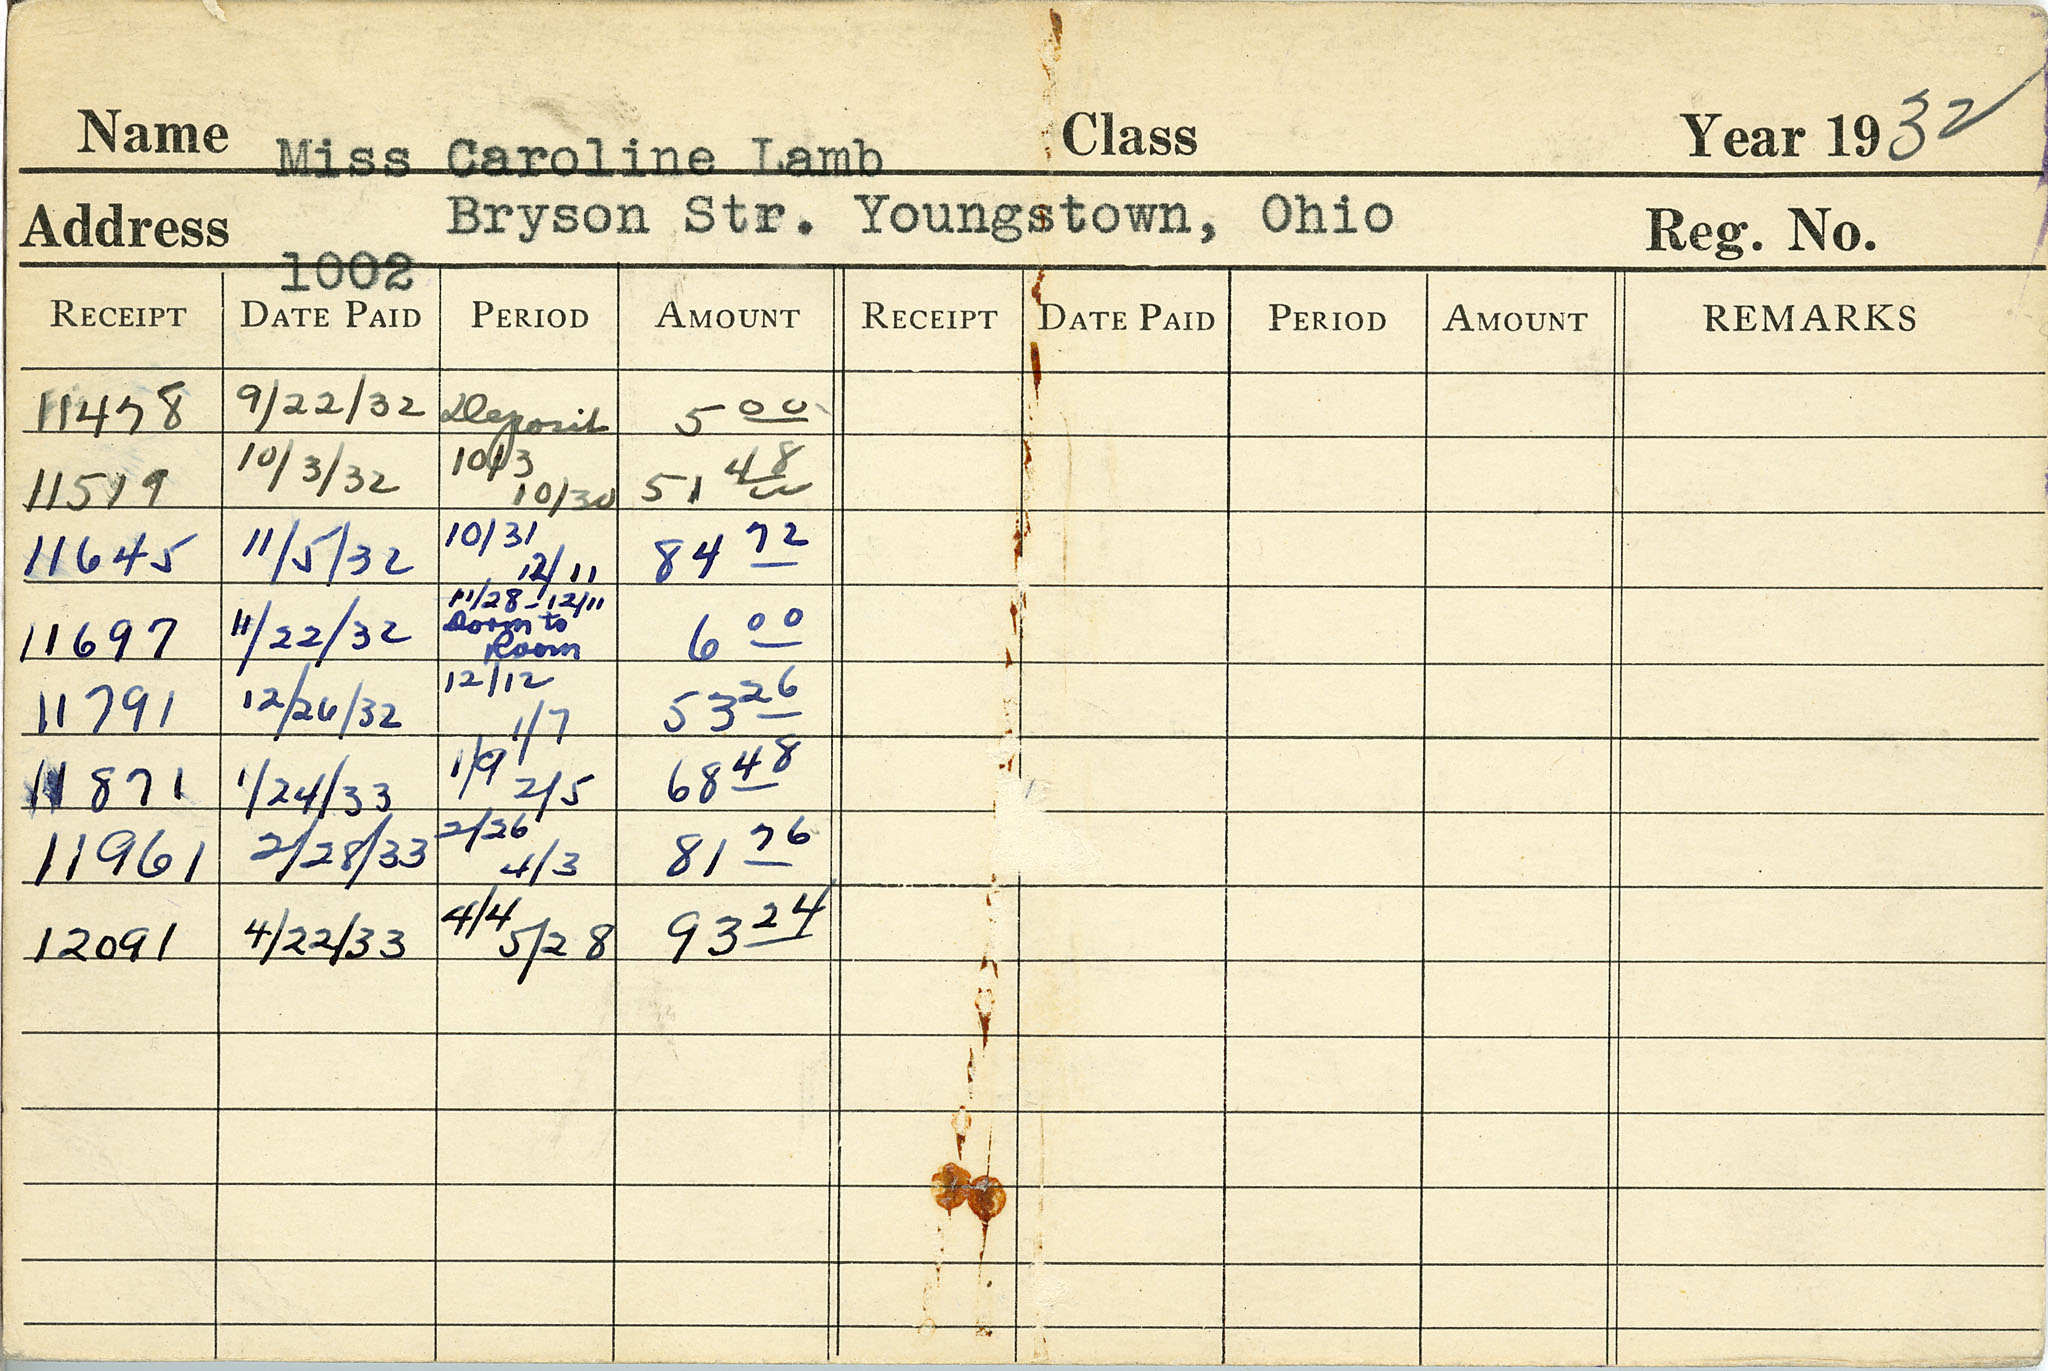 Name Miss Caroline Lamb Class Year 1932
Address Bryson Str. Youngstown, Ohio Reg. No.
1002
RECEIPT DATE PAID PERIOD AMOUNT RECEIPT DATE PAID PERIOD AMOUNT REMARKS
11478 9/22/32 Deposit 5 00
11519 10/3/32 10/3 10/30 51 48
11645 11/5/32 10/31 12/11 84 72
11697 11/22/32 11/28-12/11 Room to Room 6 00
11791 12/26/32 12/12 1/7 53 26
11871 1/24/33 1/9 2/5 68 48
11961 2/28/33 2/26 4/3 81 76
12091 4/22/33 4/4 5/28 93 24